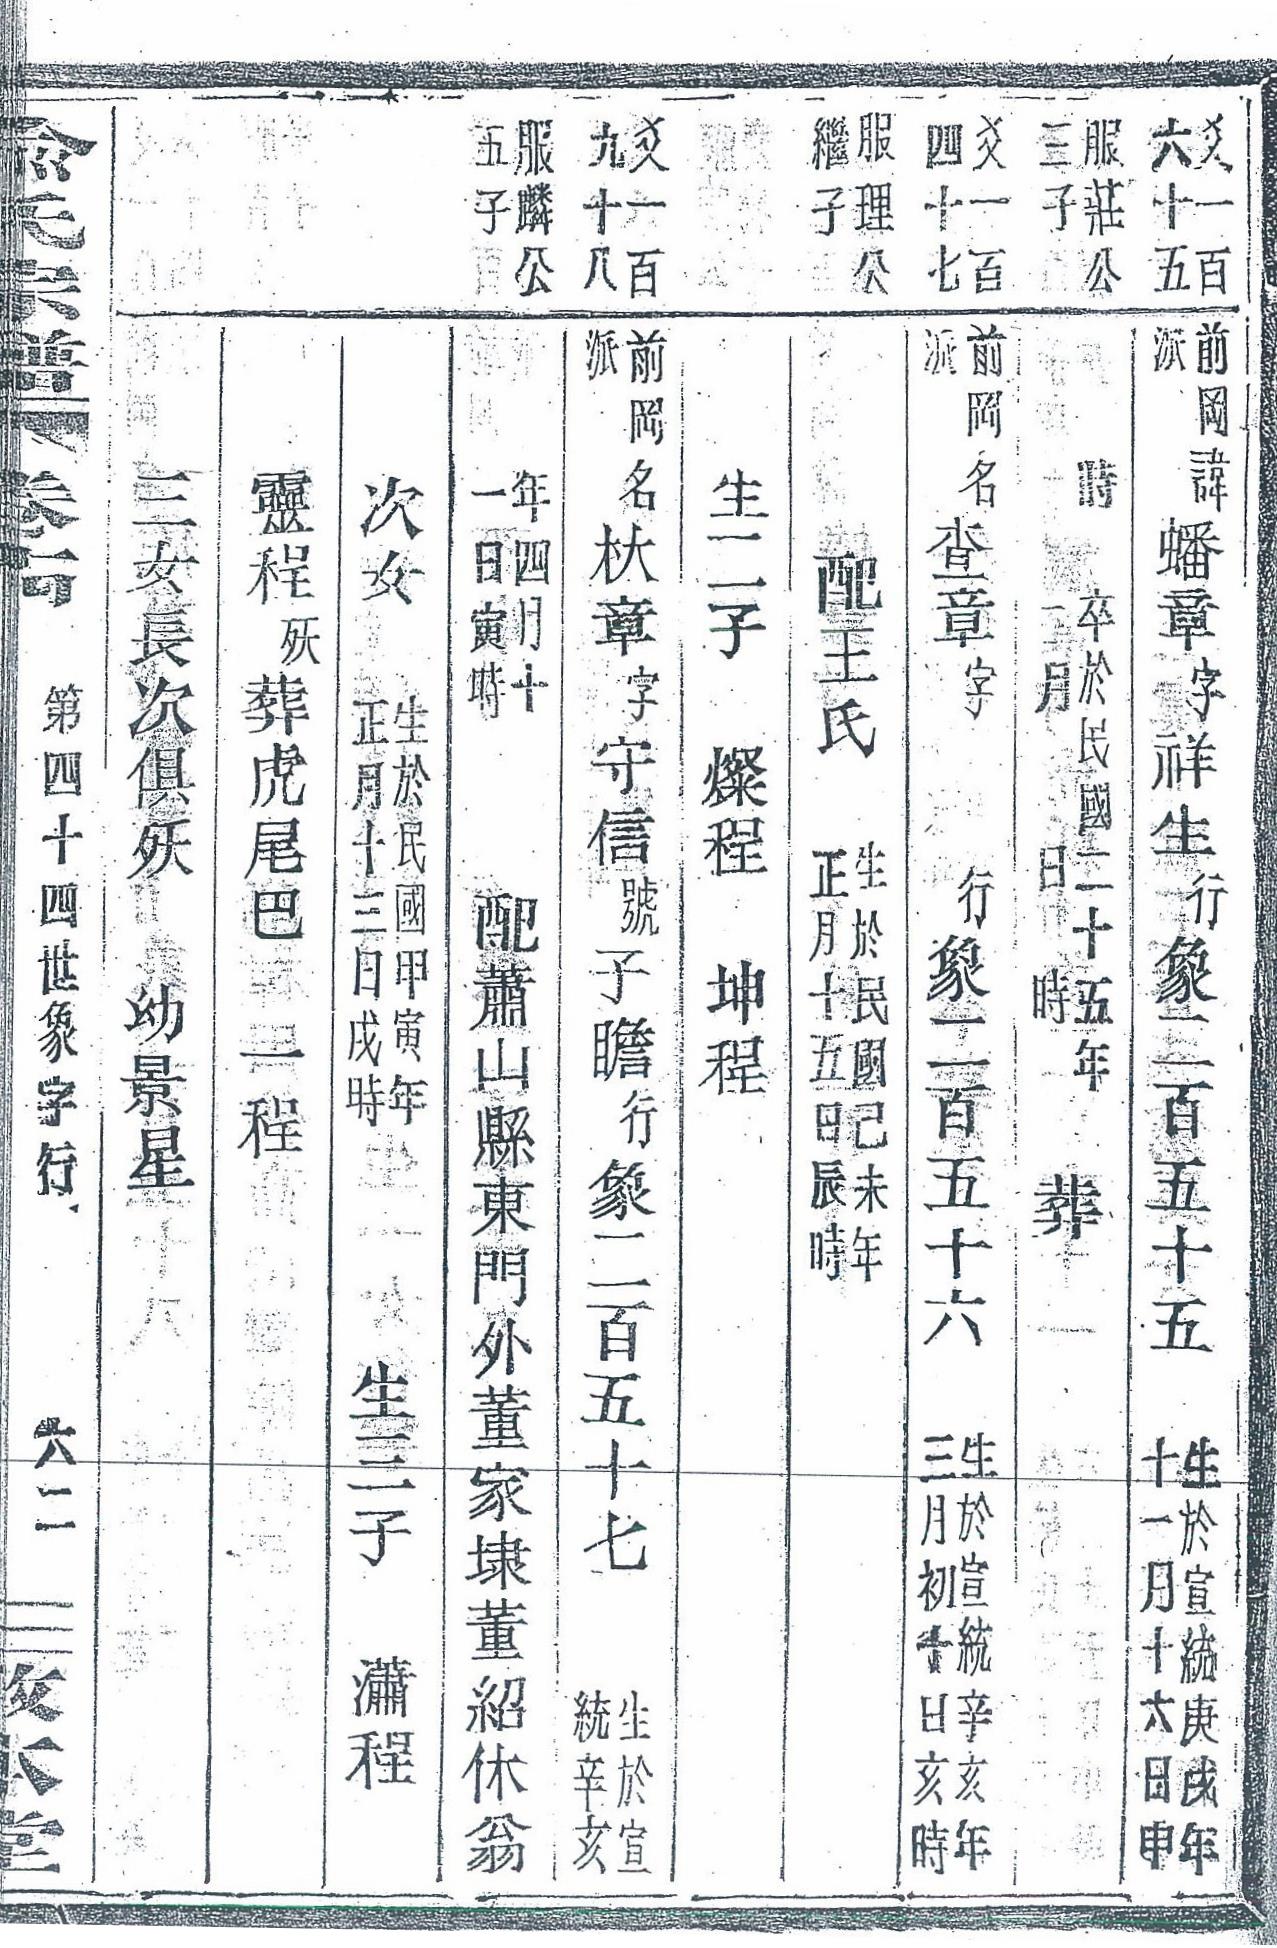 爻一百
六十五
服莊公
三子
爻一百
四十七
服理公
繼子
爻一百
九十八
服麟公
五子
前岡派諱蟠章字祥生行象二百五十五 生於宣統庚戌年十一月十六日申
時 卒於民國二十五年 月 日 時 葬
前岡派名查章字 行象二百五十六 生於宣統辛亥年三月初十日亥時
配王氏 生於民國己未年正月十五日辰時
生二子 燦程 坤程
前岡派名杕章字守信號子瞻行象二百五十七 生於宣統辛亥
年四月十一日寅時 配蕭山縣東門外董家埭董紹休翁
次女 生於民國甲寅年正月十三日戌時 生三子 瀟程
靈程殀葬虎尾巴 一程
三女長次俱殀 幼景星
俞氏宗譜 卷 第四十四世象字行 六二 敘本堂